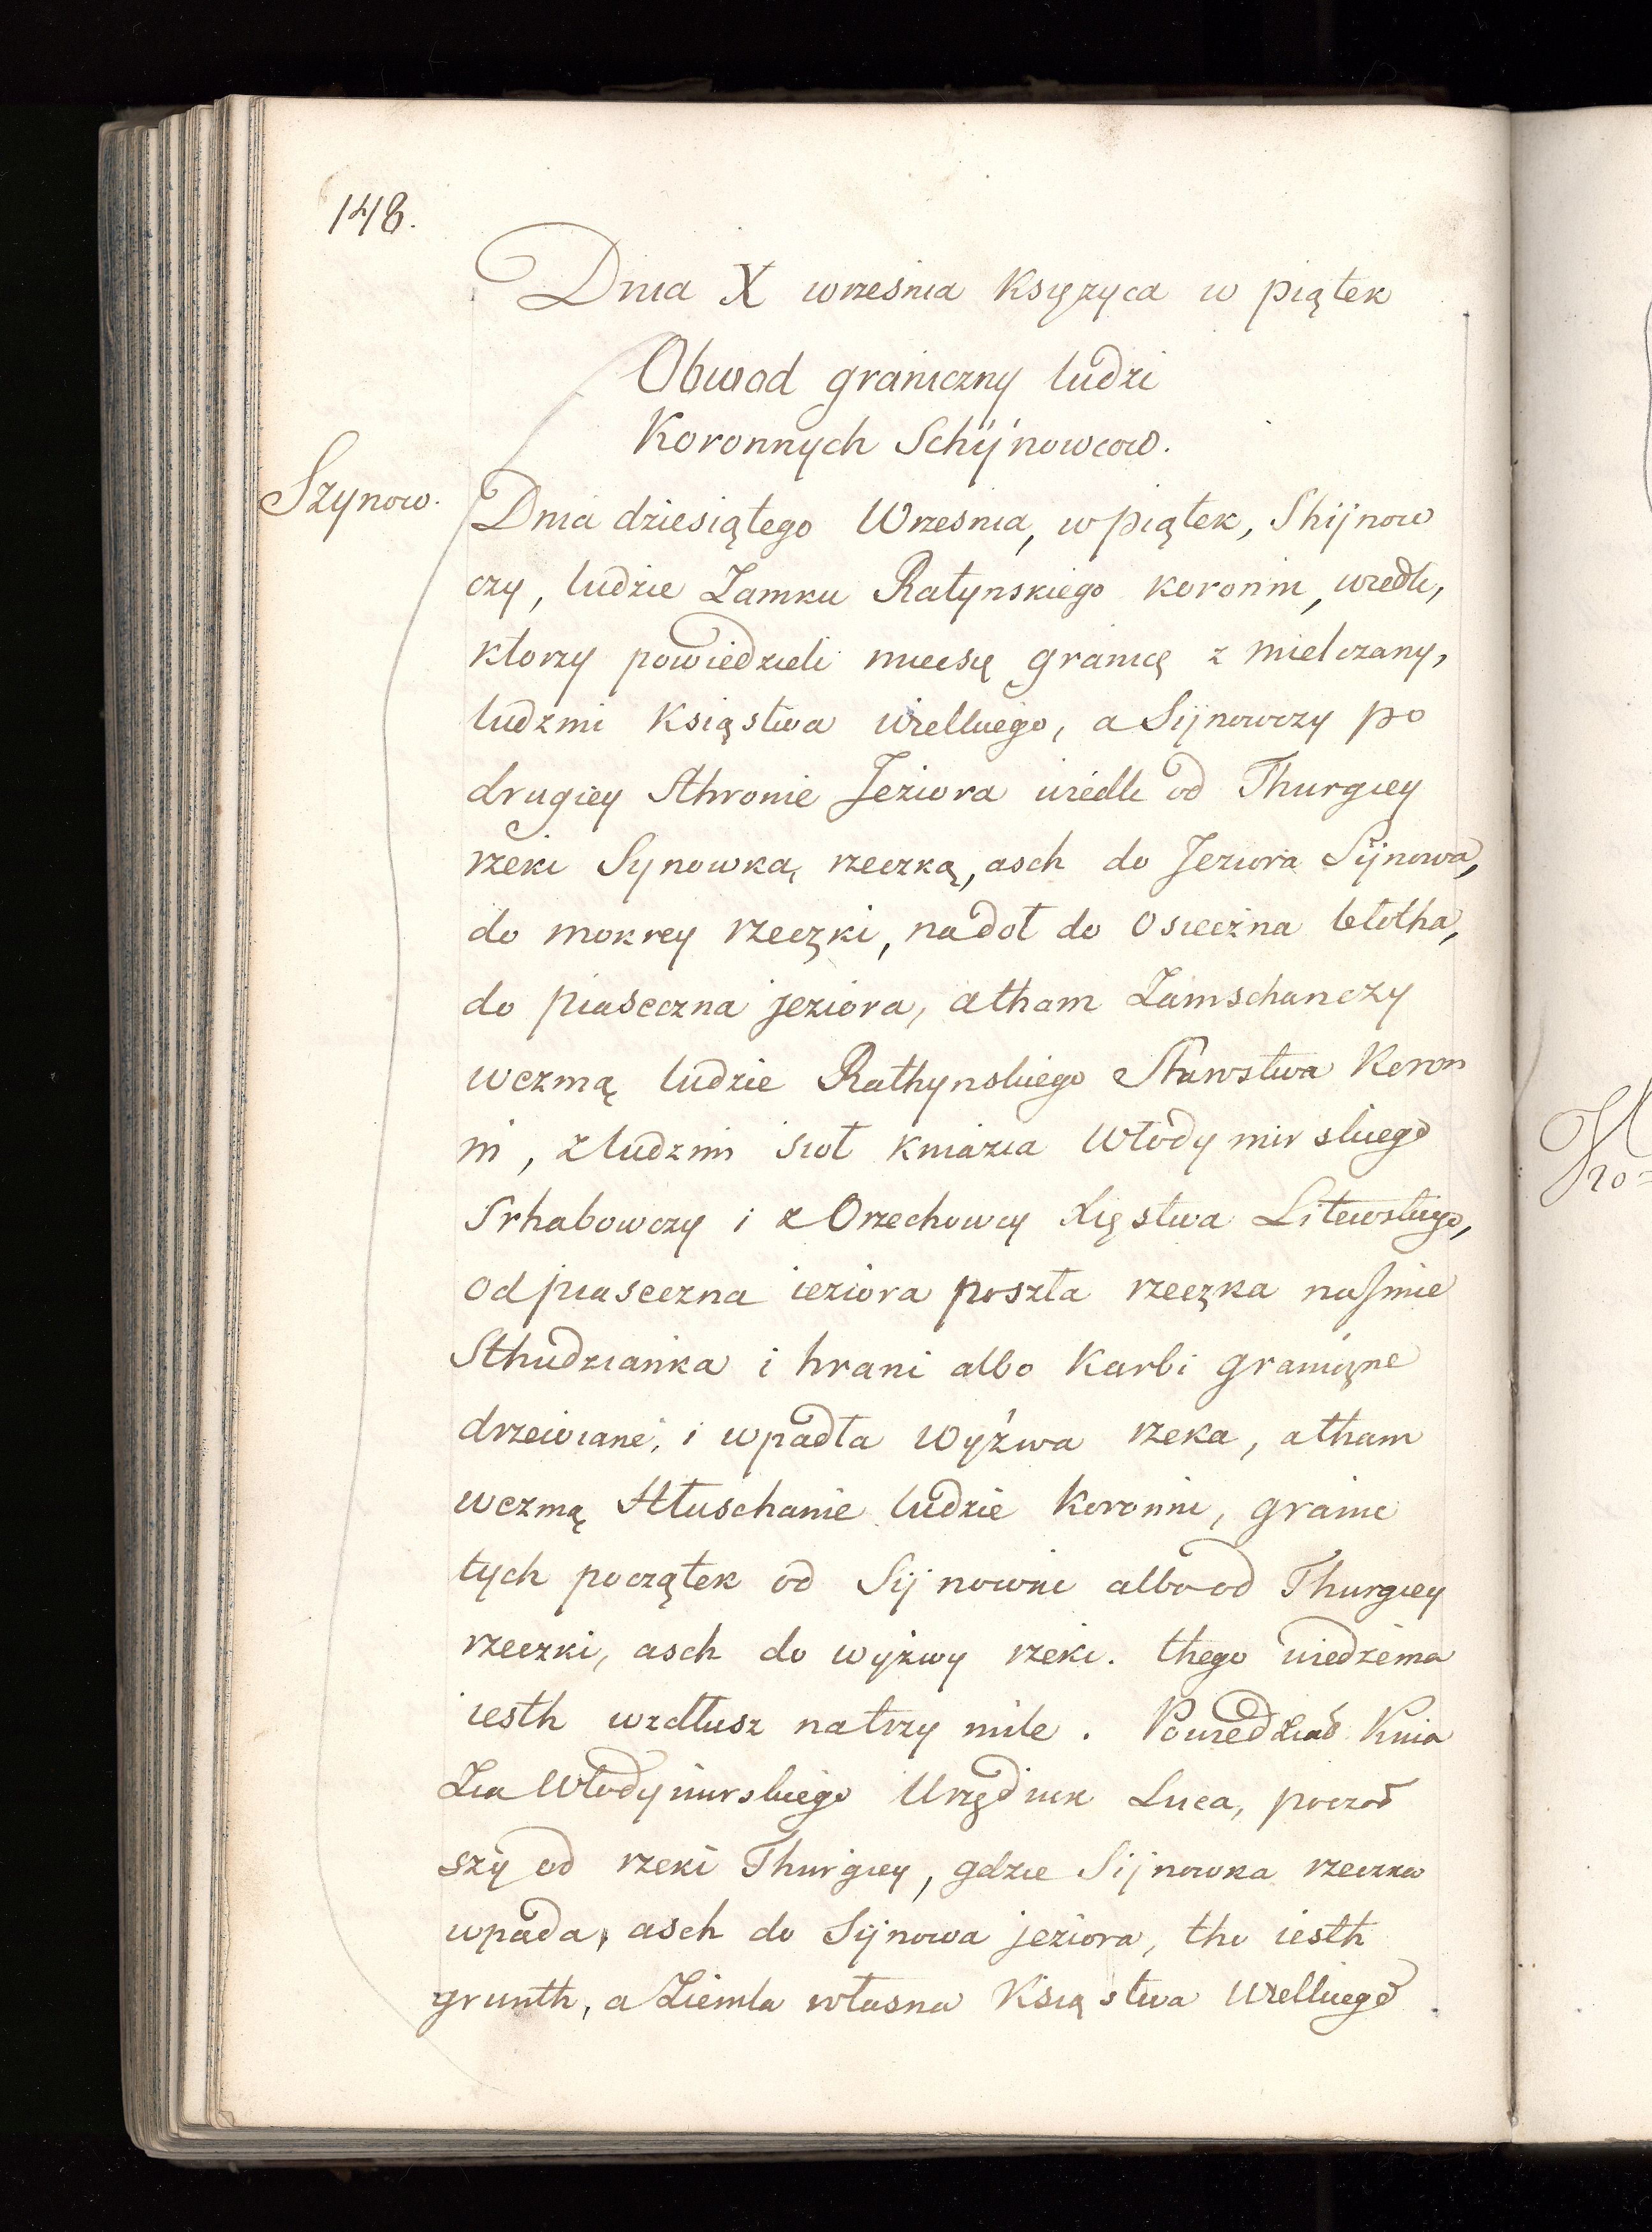 148.
Dnia X wrzesnia Księzyca w piątek
Obwod graniczny ludzi
Koronnych Schijnowcow.
Szynow.
Dnia dziesiątego Wrzesnia, w piątek, Shijnow
czy, ludzie Zamku Ratynskiego koronni, wiedli,
ktorzy powiedzieli miecsię granicę z mielczany,
ludzmi Ksiąstwa wielkiego, a Sijnowczy po
drugiey Sthronie Jeziora wiedli od Thurgiey
rzeki Synowką, rzeczką, asch do Jeziora Sijnowa,
do mokrey rzeczki, nadoł do Osieczna błotha,
do piaseczna jeziora, atham Zamschanczy
wezmą ludzie Rathynskiego Starostwa Koron
ni, z ludzmi sioł kniazia Włodymirskiego
Srhabowczy i z Orzechowcy Xięstwa Litewskiego,
od piaseczna ieziora poszła rzeczka naimie
Sthudzianka i hrani albo Karbi graniczne
drzewiane, i wpadła wyżwa rzeka, atham
wezmą Hłuschanie ludzie Koronni, granic
tych początek od Sijnowki albo od Thurgiey
rzeczki, asch do wyżwy rzeki. thego wiedzema
iesth wzdłusz natrzy mile. Powiedział Knia
Zia Włodymirskiego Urzędnik Luca, poczow
szy od rzeki Thurgiey, gdzie Sijnowka rzeczka
wpada, asch do Sijnowa jeziora, tho iesth
grunth, a Ziemla własna Ksiąstwa Wielkiego